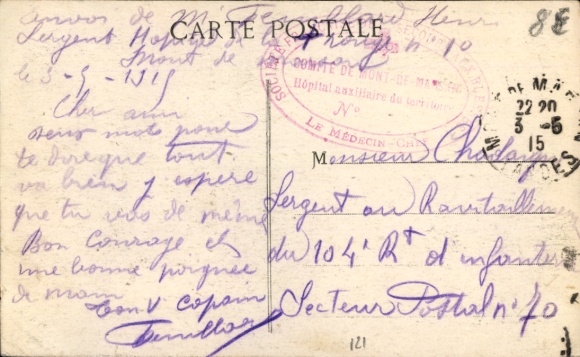 envoi de Mr
CARTE POSTALE
Henri
Sergent Hopital de la + rouge no 10
Mont de Marsan
le 3-5-1915
Cher ami
deux mots pour
te dire que tout
va bien j espere
que tu vas de même
Bon Courage et
une bonne poignée
de main
ton V copain
SOCIÉTÉ
COMITÉ DE MONT-DE-MARSAN
Hôpital auxiliaire du territoire
No
LE MÉDECIN-CHEF
22 20
3 -5
15
LANDES
Monsieur
Sergent au Ravitaillement
du 104e Rt d infanterie
Secteur Postal no 70
121
8€